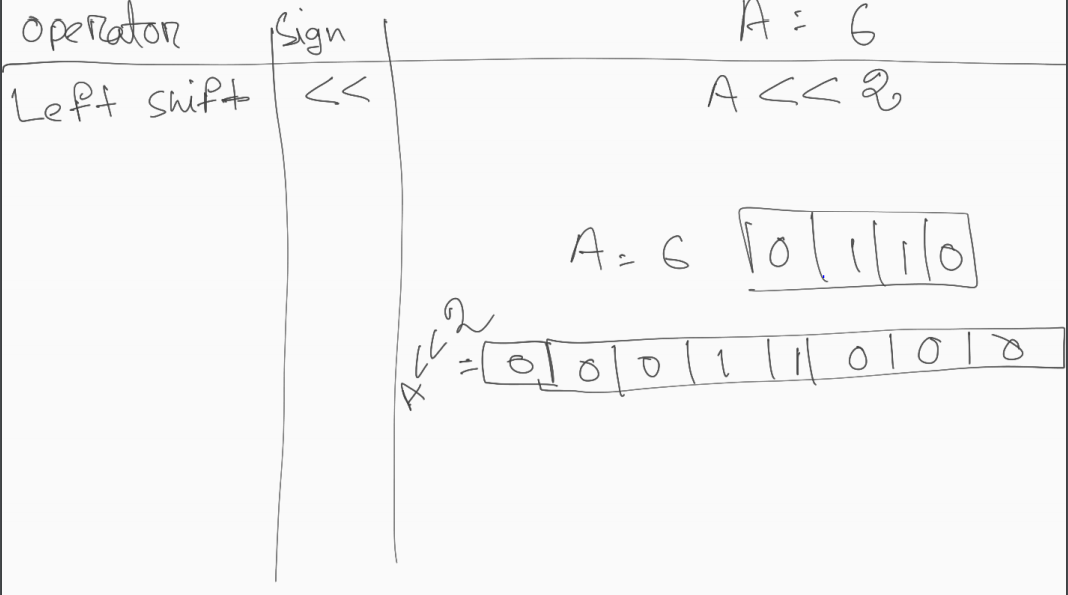 operator Sign A = 6
Left shift << A << 2
A = 6 0 1 1 0
A<<2 = 0 0 0 1 1 0 0 0